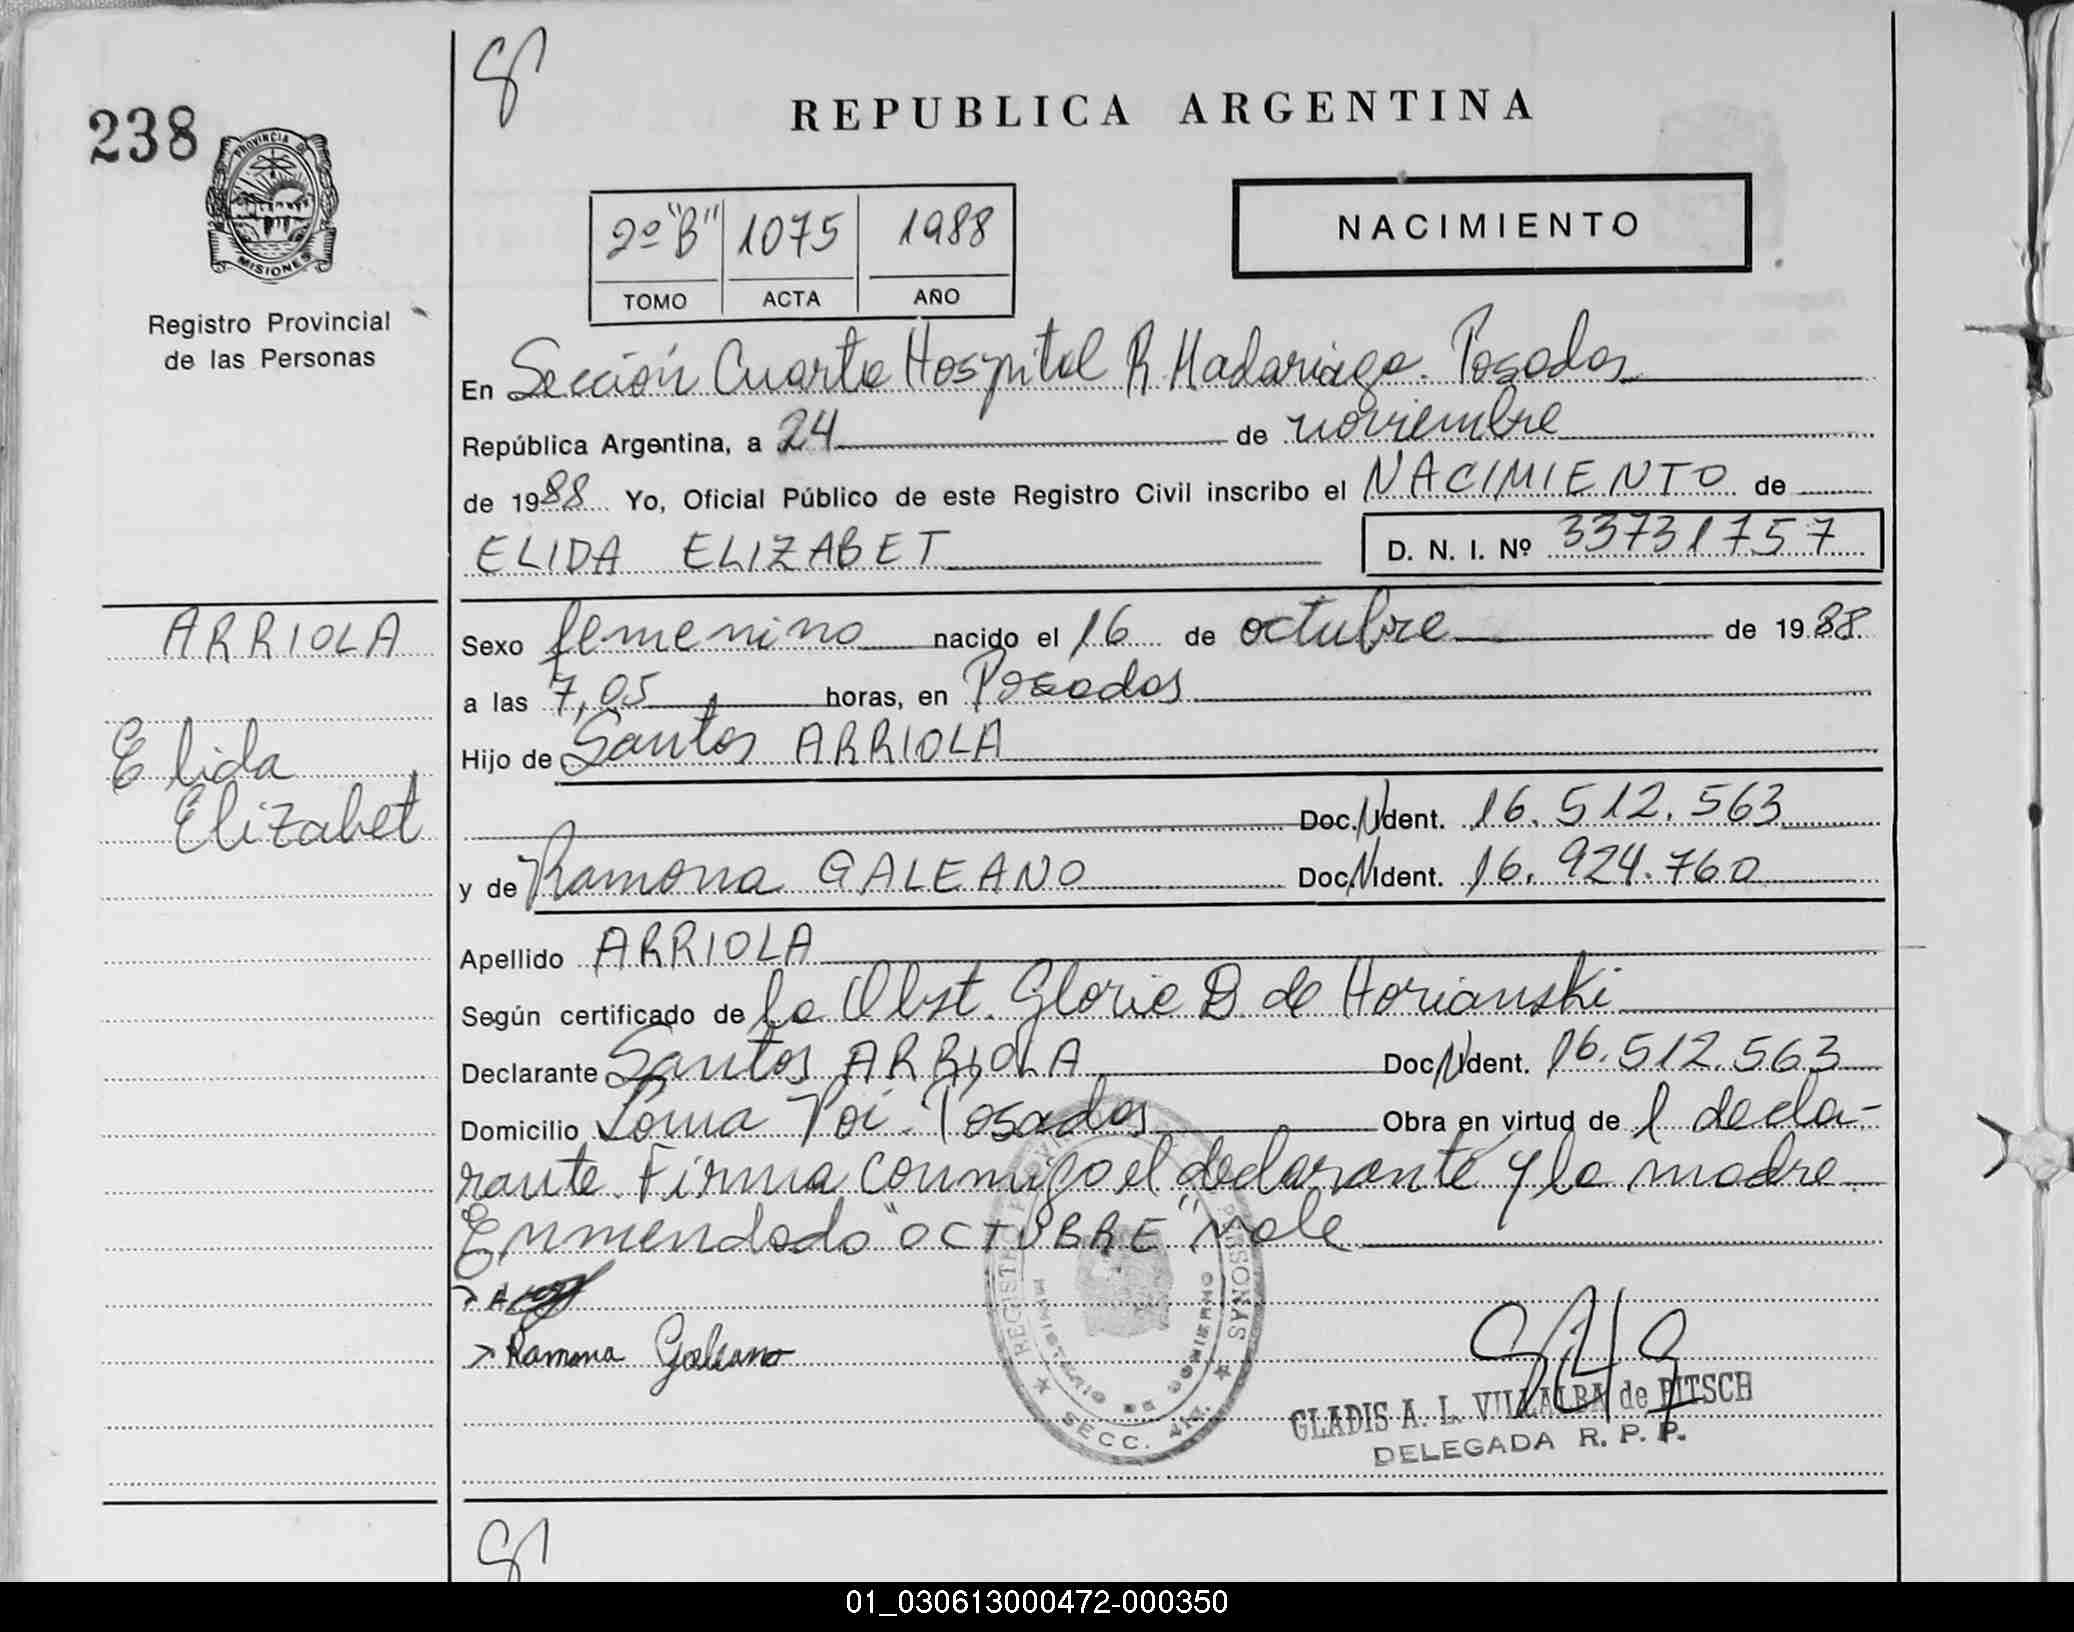 238
REPUBLICA ARGENTINA
PROVINCIA DE
MISIONES
Registro Provincial
de las Personas
2º "B" 1075 1988
TOMO ACTA AÑO
NACIMIENTO
En Sección Cuarta Hospital R. Madariaga. Posadas
República Argentina, a 24 de noviembre
de 1988 Yo, Oficial Público de este Registro Civil inscribo el NACIMIENTO de
ELIDA ELIZABET D. N. I. Nº 33731757
ARRIOLA
Elida
Elizabet
Sexo femenino nacido el 16 de octubre de 1988
a las 7,05 horas, en Posadas
Hijo de Santos ARRIOLA
Doc.N.Ident. 16.512.563
y de Ramona GALEANO Doc.N.Ident. 16.924.760
Apellido ARRIOLA
Según certificado de la Obst. Gloria D. de Horianski
Declarante Santos ARRIOLA Doc.N.Ident. 16.512.563
Domicilio Loma Poi. Posadas Obra en virtud de l decla-
rante. Firma conmigo el declarante y la madre.
Enmendado "OCTUBRE" vale
Ramona Galeano
REGISTRO PERSONAS
MINISTERIO DE GOBIERNO
SECC. 4ta.
GLADIS A. L. VILLALBA de PITSCH
DELEGADA R. P. P.
01_030613000472-000350